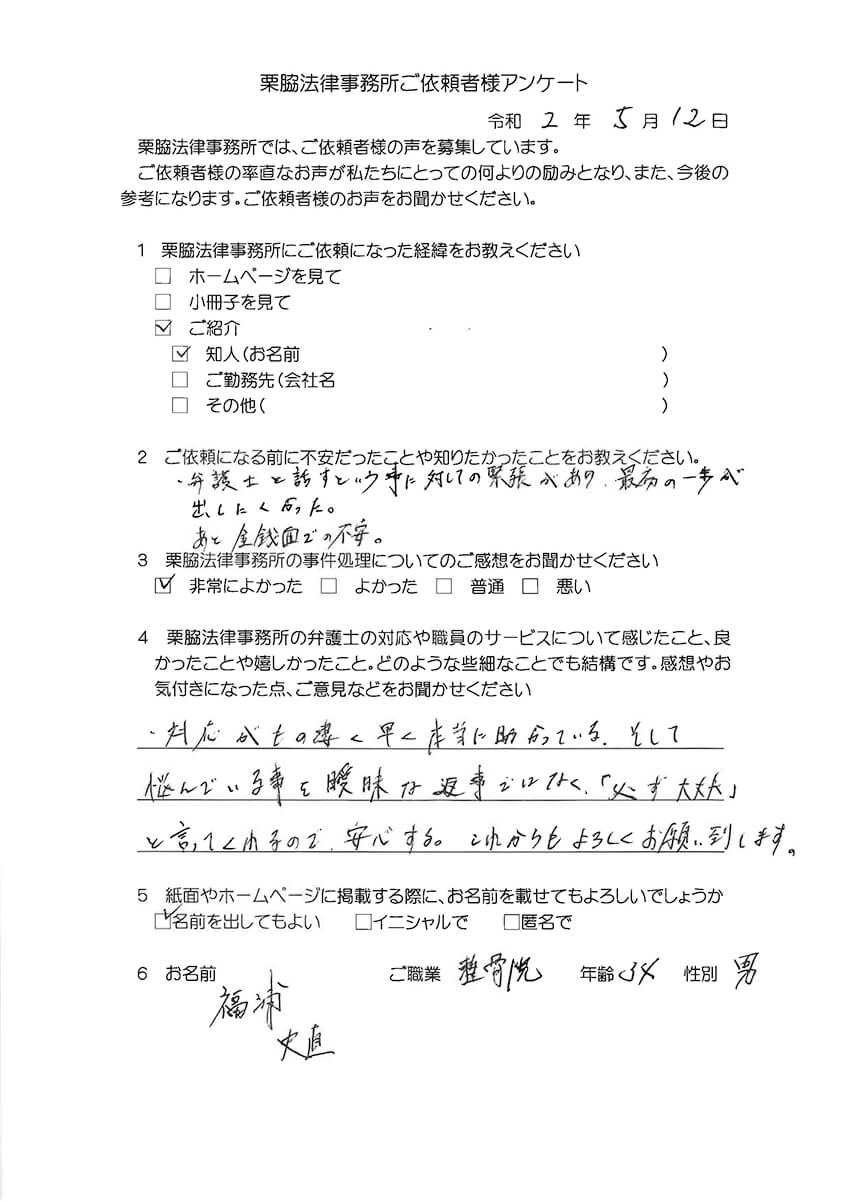 栗脇法律事務所ご依頼者様アンケート
令和 2 年 5 月 12 日
栗脇法律事務所では、ご依頼者様の声を募集しています。
ご依頼者様の率直なお声が私たちにとっての何よりの励みとなり、また、今後の
参考になります。ご依頼者様のお声をお聞かせください。
1 栗脇法律事務所にご依頼になった経緯をお教えください
□ ホームページを見て
□ 小冊子を見て
☑ ご紹介
☑ 知人(お名前 )
□ ご勤務先(会社名 )
□ その他( )
2 ご依頼になる前に不安だったことや知りたかったことをお教えください。
・弁護士と話すという事に対しての緊張があり、最初の一歩が
出しにくかった。
あと金銭面での不安。
3 栗脇法律事務所の事件処理についてのご感想をお聞かせください
☑ 非常によかった □ よかった □ 普通 □ 悪い
4 栗脇法律事務所の弁護士の対応や職員のサービスについて感じたこと、良
かったことや嬉しかったこと。どのような些細なことでも結構です。感想やお
気付きになった点、ご意見などをお聞かせください
・対応がもの凄く早く本当に助かっている。そして
悩んでいる事を曖昧な返事ではなく、「必ず大丈夫」
と言ってくれるので、安心する。これからもよろしくお願い致します。
5 紙面やホームページに掲載する際に、お名前を載せてもよろしいでしょうか
☑名前を出してもよい □イニシャルで □匿名で
6 お名前 ご職業 整骨院 年齢 34 性別 男
福浦
史直